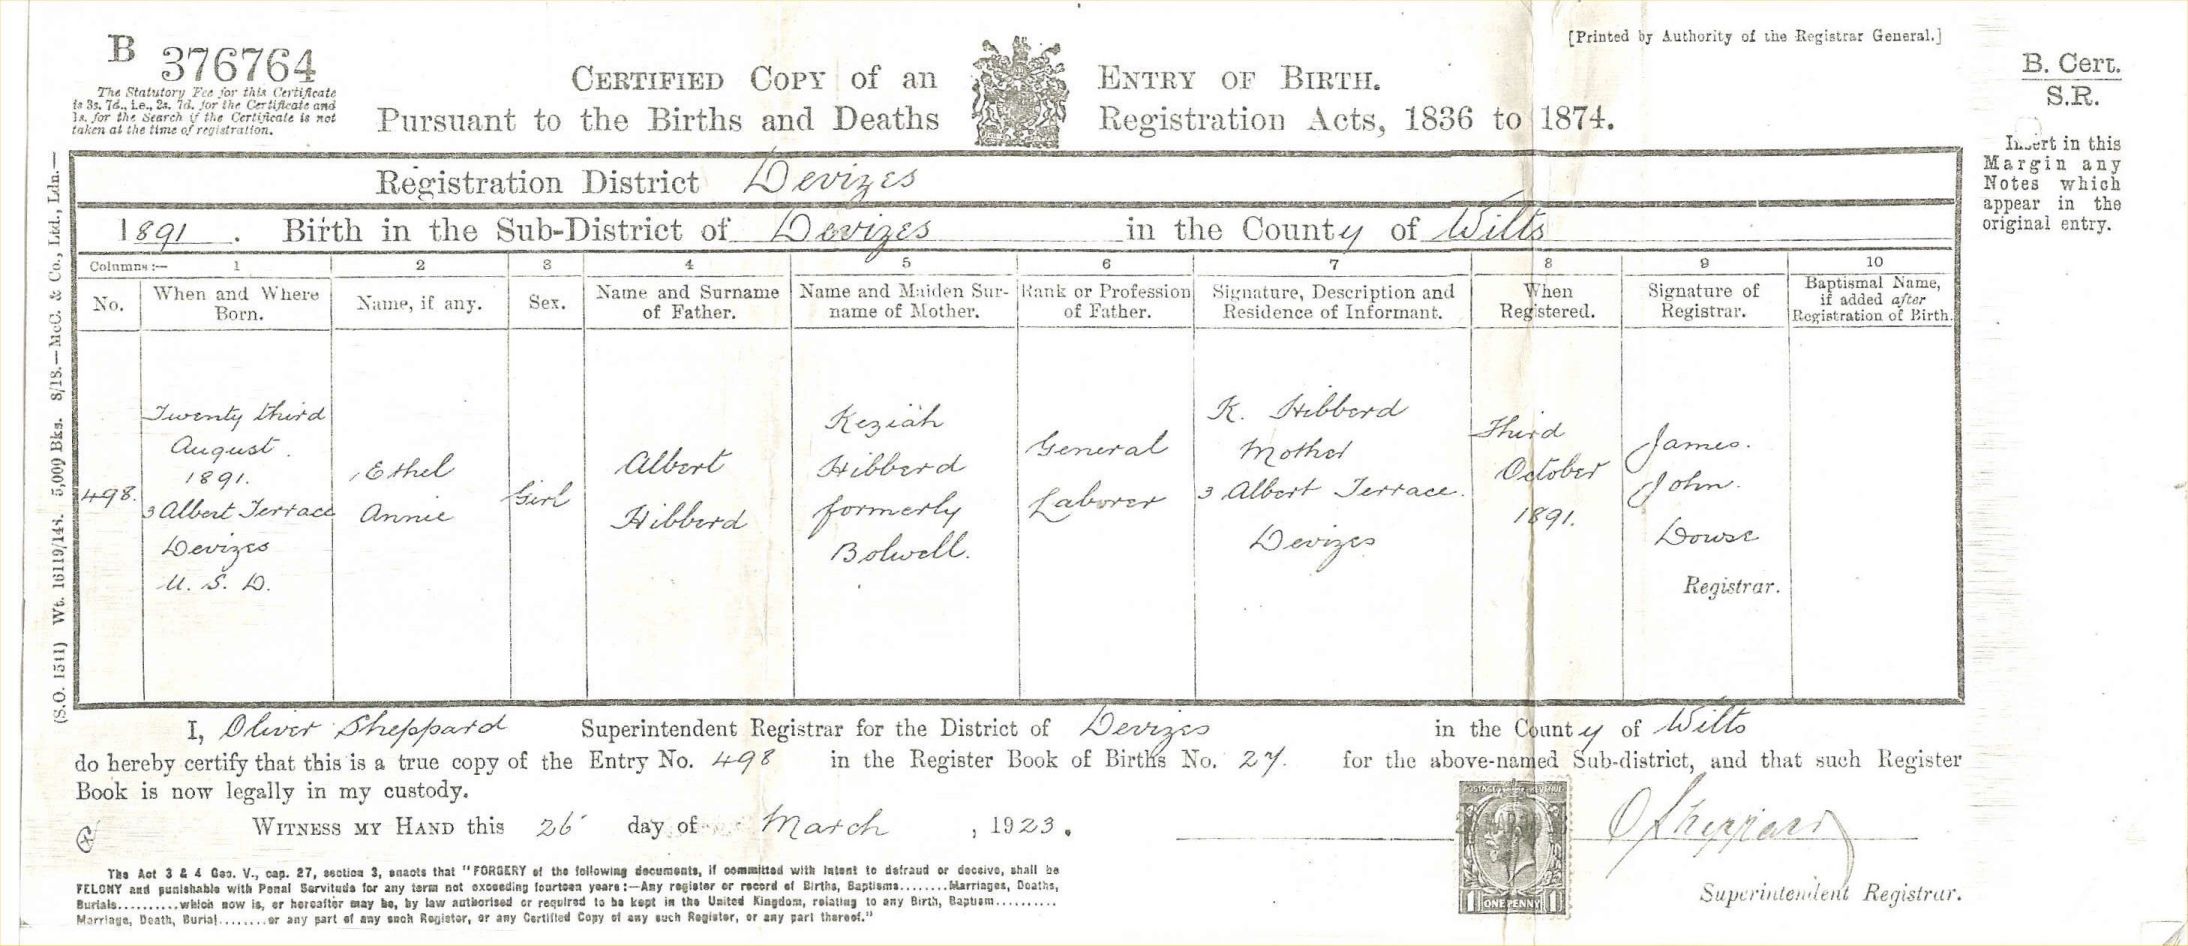 B 376764
The Statutory Fee for this Certificate
is 3s. 7d., i.e., 2s. 7d. for the Certificate and
1s. for the Search if the Certificate is not
taken at the time of registration.
[Printed by Authority of the Registrar General.]
B. Cert.
S.R.
CERTIFIED COPY of an ENTRY OF BIRTH.
Pursuant to the Births and Deaths Registration Acts, 1836 to 1874.
Insert in this
Margin any
Notes which
appear in the
original entry.
(S.O. 1511) Wt. 16119/145. 5,000 Bks. 8/18.—McC. & Co., Ltd., Ldn.—
Registration District Devizes
1891. Birth in the Sub-District of Devizes in the County of Wilts
Columns:— 1 2 3 4 5 6 7 8 9 10
No.
When and Where
Born.
Name, if any.
Sex.
Name and Surname
of Father.
Name and Maiden Sur-
name of Mother.
Rank or Profession
of Father.
Signature, Description and
Residence of Informant.
When
Registered.
Signature of
Registrar.
Baptismal Name,
if added after
Registration of Birth.
498.
Twenty third
August.
1891.
3 Albert Terrace
Devizes
U. S. D.
Ethel
Annie
Girl
Albert
Hibberd
Keziah
Hibberd
formerly
Bolwell.
General
Laborer
K. Hibberd
Mother
3 Albert Terrace.
Devizes
Third
October
1891.
James.
John.
Dowse
Registrar.
I, Oliver Sheppard Superintendent Registrar for the District of Devizes in the County of Wilts
do hereby certify that this is a true copy of the Entry No. 498 in the Register Book of Births No. 27. for the above-named Sub-district, and that such Register
Book is now legally in my custody.
WITNESS MY HAND this 26 day of March, 1923.
O Sheppard
Superintendent Registrar.
POSTAGE REVENUE
1 ONE PENNY 1
The Act 3 & 4 Geo. V., cap. 27, section 3, enacts that "FORGERY of the following documents, if committed with intent to defraud or deceive, shall be
FELONY and punishable with Penal Servitude for any term not exceeding fourteen years:—Any register or record of Births, Baptisms........Marriages, Deaths,
Burials..........which now is, or hereafter may be, by law authorised or required to be kept in the United Kingdom, relating to any Birth, Baptism..........
Marriage, Death, Burial........or any part of any such Register, or any Certified Copy of any such Register, or any part thereof."